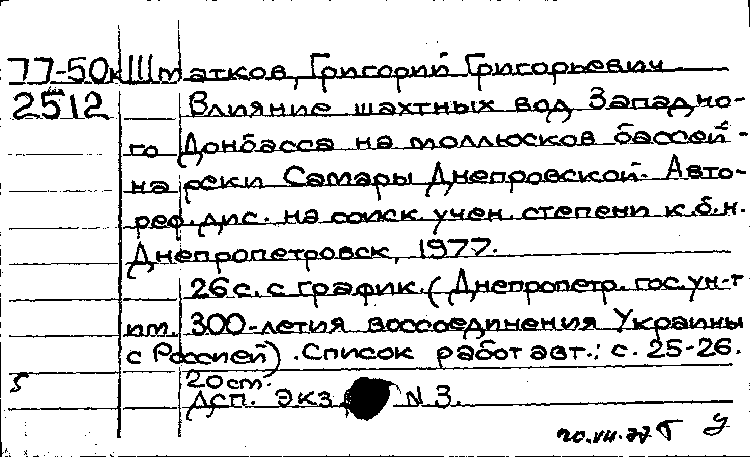 77-50к Шматков, Григорий Григорьевич
2512 Влияние шахтных вод Западно-
го Донбасса на моллюсков бассей-
на реки Самары Днепровской. Авто-
реф. дис. на соиск. учен. степени к.б.н.
Днепропетровск, 1977.
26 с. с график. (Днепропетр. гос. ун-т
им. 300-летия воссоединения Украины
с Россией). Список работ авт.: с. 25-26.
5 20 cm.
Дсп. Экз N 3.
20.VII.77